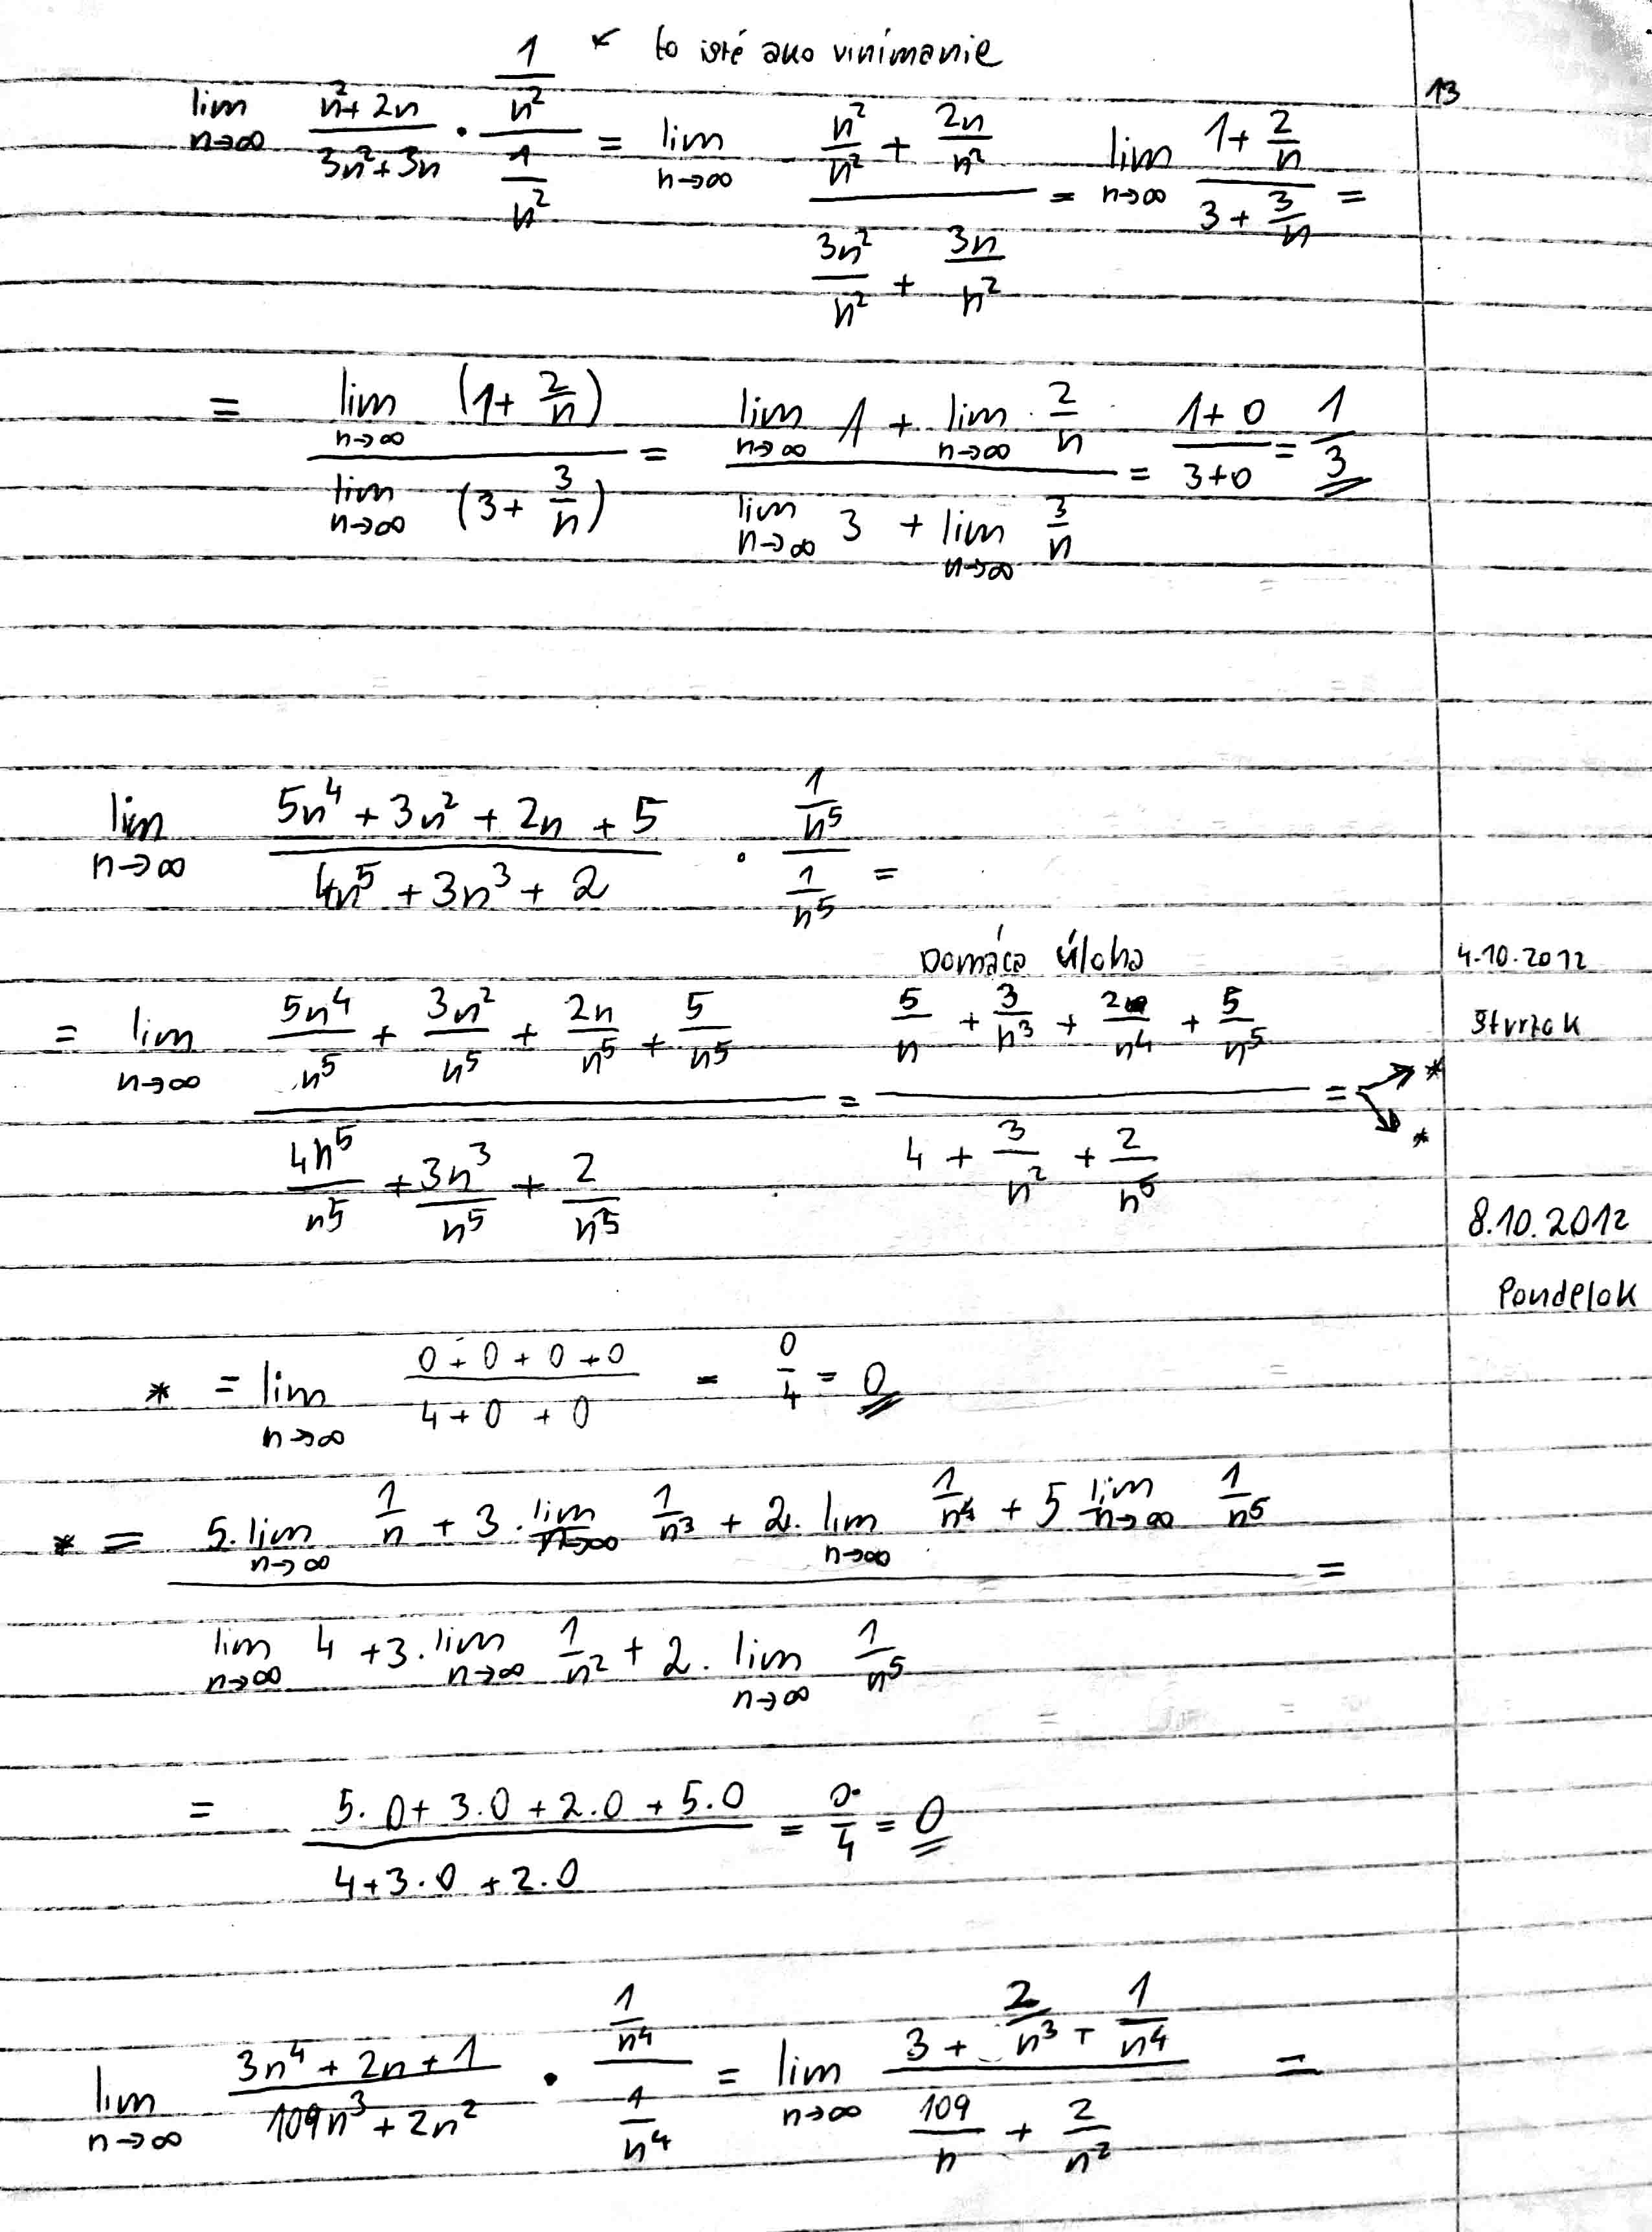 1/n² ← to isté ako vinímanie
13
lim n→∞ (n²+2n)/(3n²+3n) · (1/n²)/(1/n²) = lim n→∞ (n²/n² + 2n/n²)/(3n²/n² + 3n/n²) = lim n→∞ (1+2/n)/(3+3/n) =
= (lim n→∞ (1+2/n))/(lim n→∞ (3+3/n)) = (lim n→∞ 1 + lim n→∞ 2/n)/(lim n→∞ 3 + lim n→∞ 3/n) = (1+0)/(3+0) = 1/3
lim n→∞ (5n⁴+3n²+2n+5)/(4n⁵+3n³+2) · (1/n⁵)/(1/n⁵) =
Domáca úloha
4.10.2012
štvrtok
= lim n→∞ (5n⁴/n⁵ + 3n²/n⁵ + 2n/n⁵ + 5/n⁵)/(4n⁵/n⁵ + 3n³/n⁵ + 2/n⁵) = (5/n + 3/n³ + 2/n⁴ + 5/n⁵)/(4 + 3/n² + 2/n⁵) = * *
8.10.2012
Pondelok
* = lim n→∞ (0+0+0+0)/(4+0+0) = 0/4 = 0
* = (5.lim n→∞ 1/n + 3.lim n→∞ 1/n³ + 2.lim n→∞ 1/n⁴ + 5 lim n→∞ 1/n⁵)/(lim n→∞ 4 + 3.lim n→∞ 1/n² + 2.lim n→∞ 1/n⁵) =
= (5.0+3.0+2.0+5.0)/(4+3.0+2.0) = 0/4 = 0
lim n→∞ (3n⁴+2n+1)/(109n³+2n²) · (1/n⁴)/(1/n⁴) = lim n→∞ (3 + 2/n³ + 1/n⁴)/(109/n + 2/n²) =